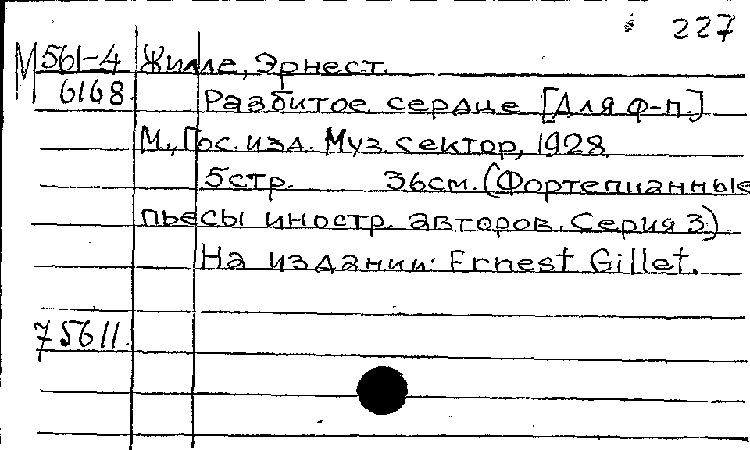 227
М 561-4 Жилле, Эрнест.
6168 Разбитое сердце [Для ф-п.]
М., Гос. изд. Муз. сектор, 1928.
5стр. 36см. (Фортепианные
пьесы иностр. авторов. Серия 3)
На издании: Ernest Gillet.
75611